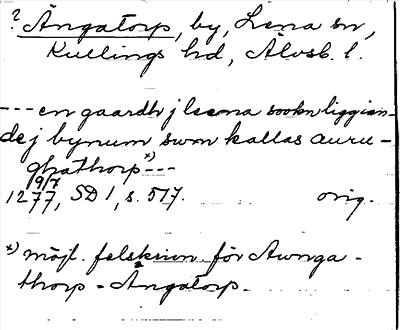 ? Ängatorp, by, Lena sn,
Kullings hd, Älvsb. l.
--- en gaardh j leena sookn liggian-
de j bynum swm kallas auru-
ghathorp x) ---
19/7
1277, SD 1, s. 517. orig.
x) möjl. felskrivn. för Awnga-
thorp = Ängatorp.